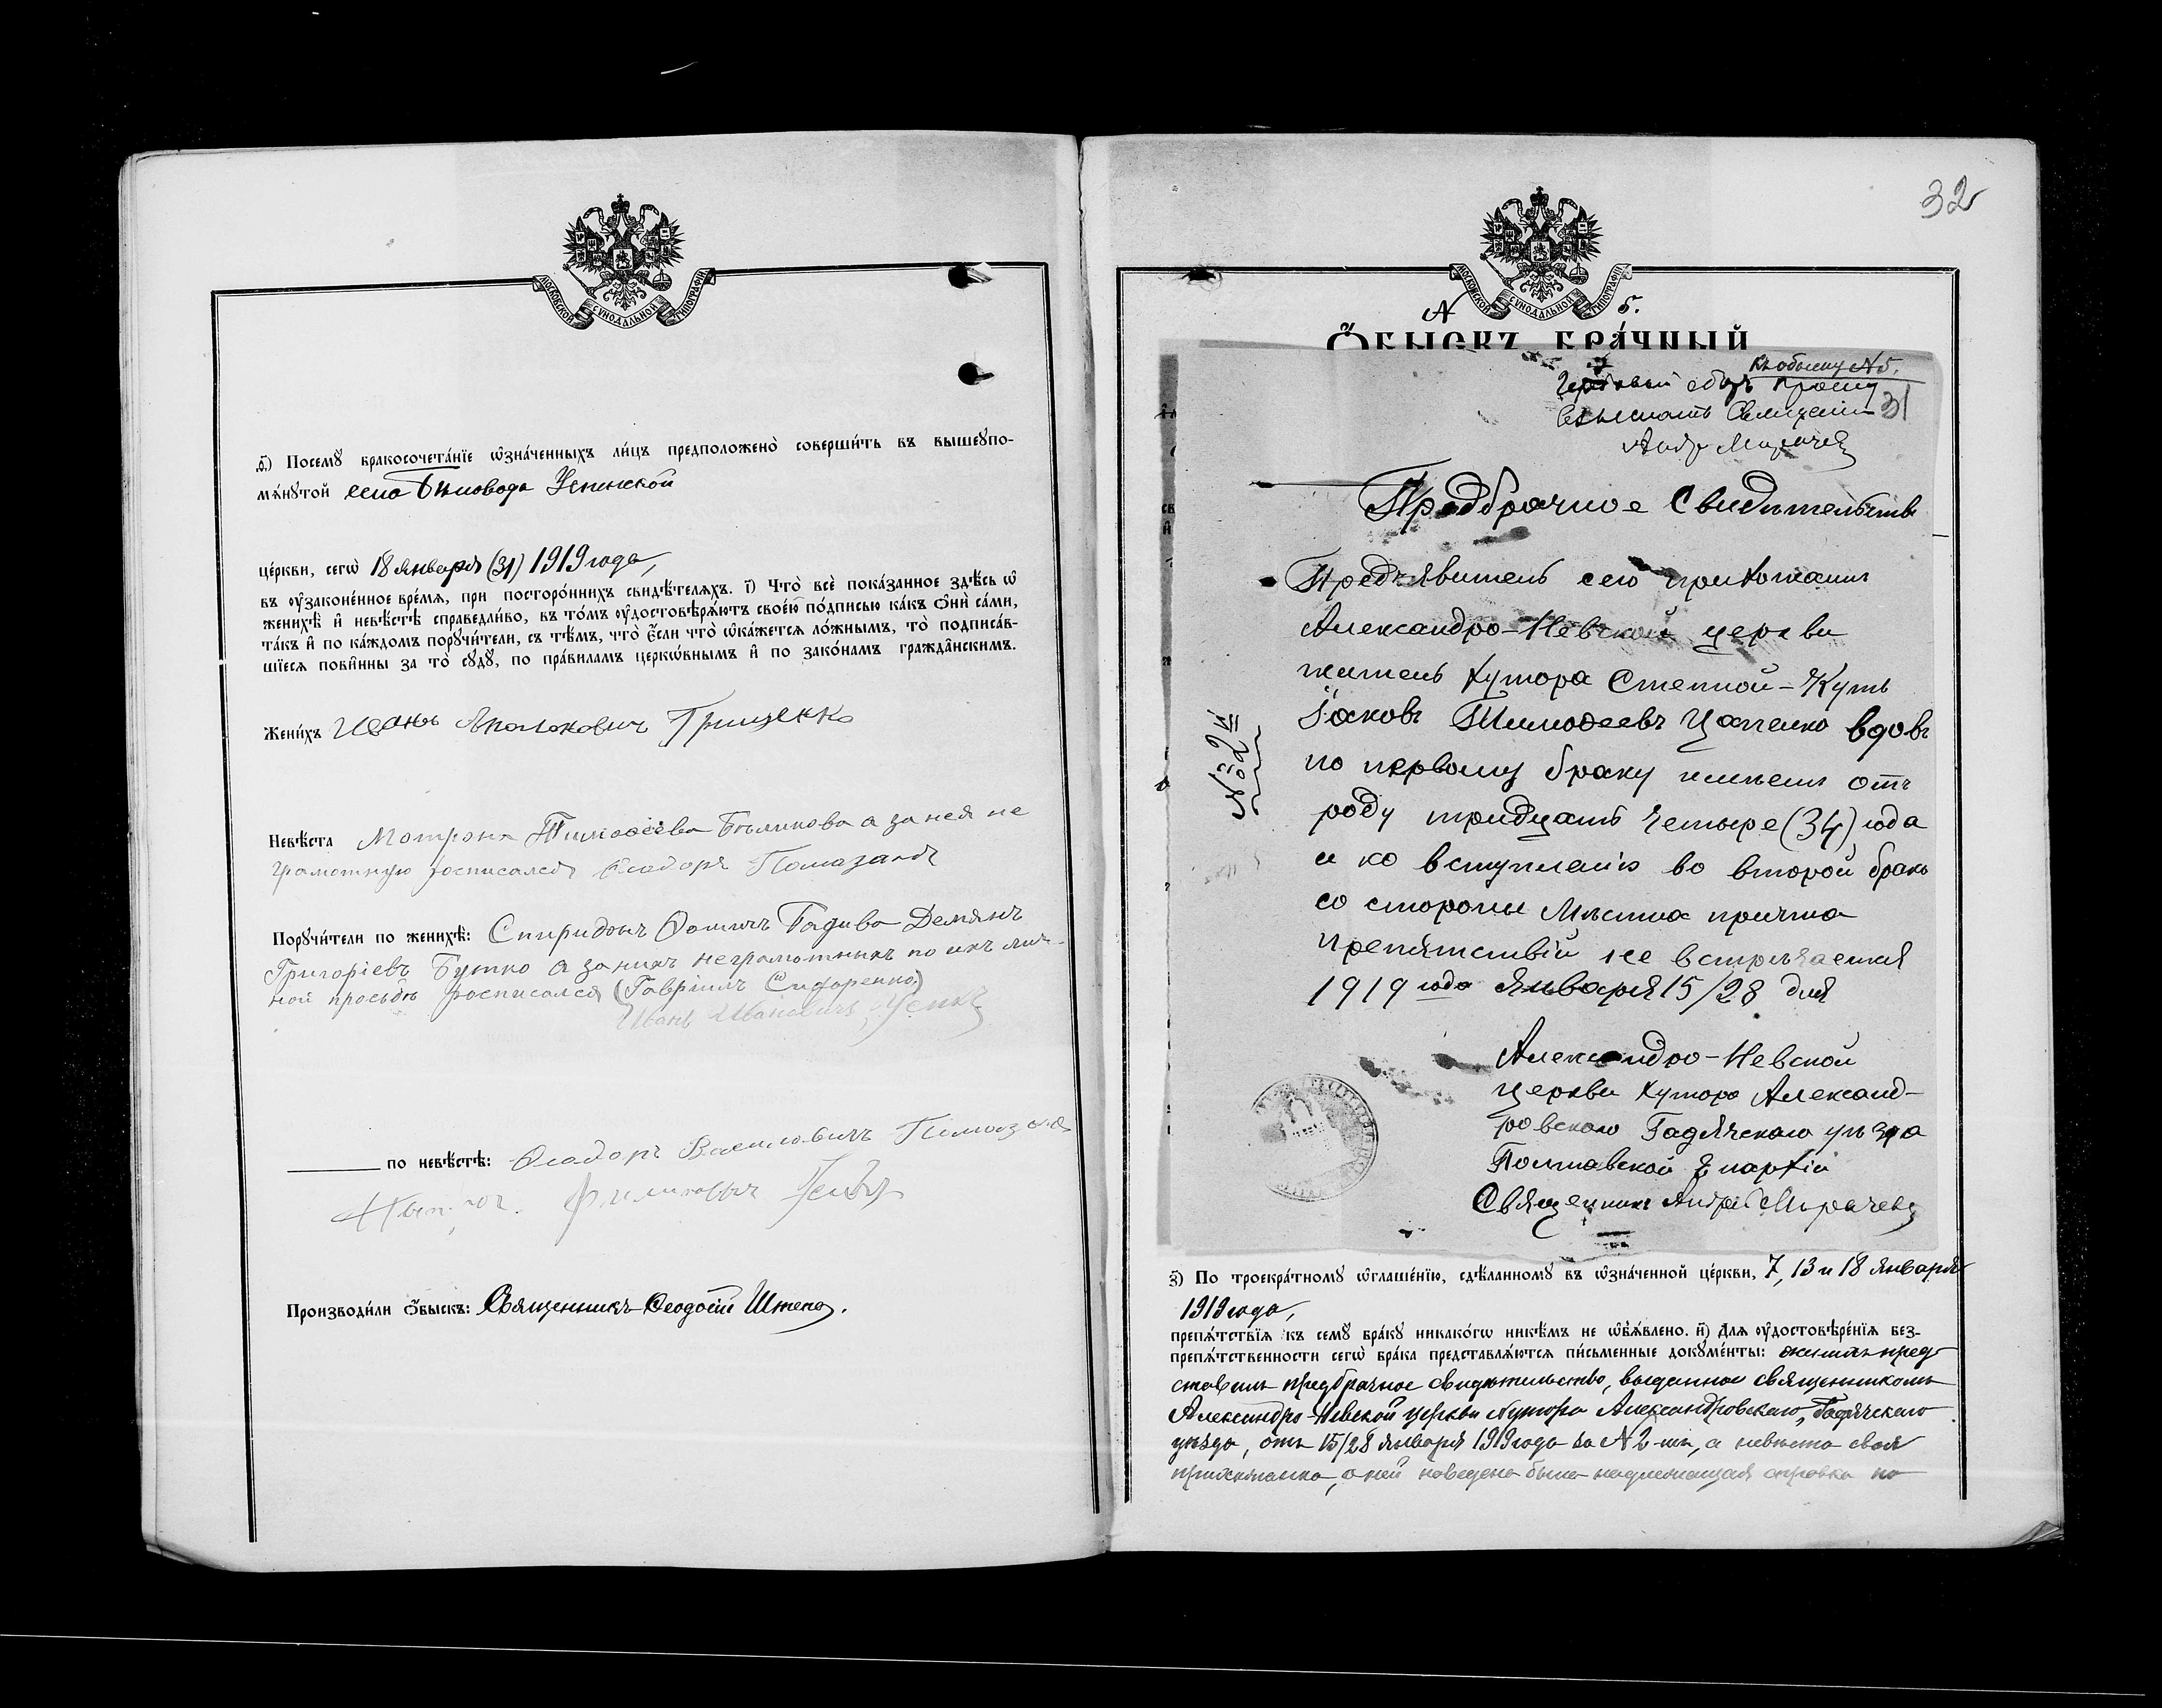 МОСКОВСКОЙ СУНОДАЛЬНОЙ ТИПОГРАФІИ
Посемꙋ̀ бракосочета́нїе ѡ҆зна́ченныхъ ли́цъ предположено̀ соверши́ть въ вышеꙋпо-
мѧ́нꙋтой села Бѣловода Успенской
це́ркви, сегѡ̀ 18 января (31) 1919 года,
въ оу҆законе́нное вре́мѧ, при посторо́ннихъ свидѣ́телѧхъ. і҃) Что̀ всѐ пока́занное здѣ́сь ѡ҆
женихѣ̀ и҆ невѣ́стѣ справедли́во, въ то́мъ оу҆достовѣрѧ́ютъ свое́ю по́дписью ка́къ ѻ҆нѝ са́ми,
та́къ и҆ по ка́ждомъ порꙋчи́тели, съ тѣ́мъ, что̀ є҆́сли что̀ ѡ҆ка́жетсѧ ло́жнымъ, то̀ подписа́в-
шїесѧ пови́нны за то̀ сꙋдꙋ̀, по пра́виламъ церкѡ́внымъ и҆ по зако́намъ гражда́нскимъ.
Жени́хъ Иванъ Грищенко
Невѣ́ста Мотрона Тимоѳеева Бѣликова а за нея не
грамотную росписался Ѳеодоръ Помазанъ
Порꙋчи́тели по женихѣ̀: Спиридонъ Демянъ
Григоріевъ Бутко а за нихъ неграмотныхъ по ихъ лич-
ной просьбѣ росписался (Гавріилъ Сидоренко)
Иванъ Ивановичъ
по невѣ́стѣ: Ѳеодоръ Василовичъ
Производи́ли ѻ҆́быскъ: Священникъ Ѳеодосій Штепа.
32
МОСКОВСКОЙ СУНОДАЛЬНОЙ ТИПОГРАФІИ
№ 5.
Ѻ҆́БЫСКЪ БРА́ЧНЫЙ
Къ обыску № 5.
прошу
31
Предбрачное Свидѣтельство
Предъявитель сего прихожанин
Александро-Невской церкви
житель хутора Степной-Куть
Іаковъ Тимоѳеевъ Цапенко вдовъ
по первому браку имѣетъ отъ
роду тридцать четыре (34) года
и ко вступленію во второй бракъ
со стороны Мѣстна причта
препятствій не встрѣчается
1919 года Января 15/28 дня
№ 2й
Александро-Невской
церкви хутора Александ-
ровскаго Гадячскаго уѣзда
Полтавской Епархіи
Священникъ Андрей
з҃) По троекра́тномꙋ ѡ҆глаше́нїю, сдѣ́ланномꙋ въ ѡ҆зна́ченной це́ркви, 7, 13 и 18 января
1919 года,
препѧ́тствїѧ къ семꙋ̀ бра́кꙋ никако́гѡ никѣ́мъ не ѡ҆б̾ѧ́влено. и҃) Длѧ оу҆достовѣре́нїѧ без-
препѧ́тственности сегѡ̀ бра́ка представлѧ́ютсѧ пи́сьменные докꙋме́нты: женихъ пред-
ставилъ предбрачное свидѣтельство, выданное священникомъ
Александро-Невской церкви хутора Александровскаго, Гадячскаго
уѣзда, отъ 15/28 января 1919 года за № 2-мъ, а невѣста своя
прихожанка, о ней наведена была надлежащая справка по